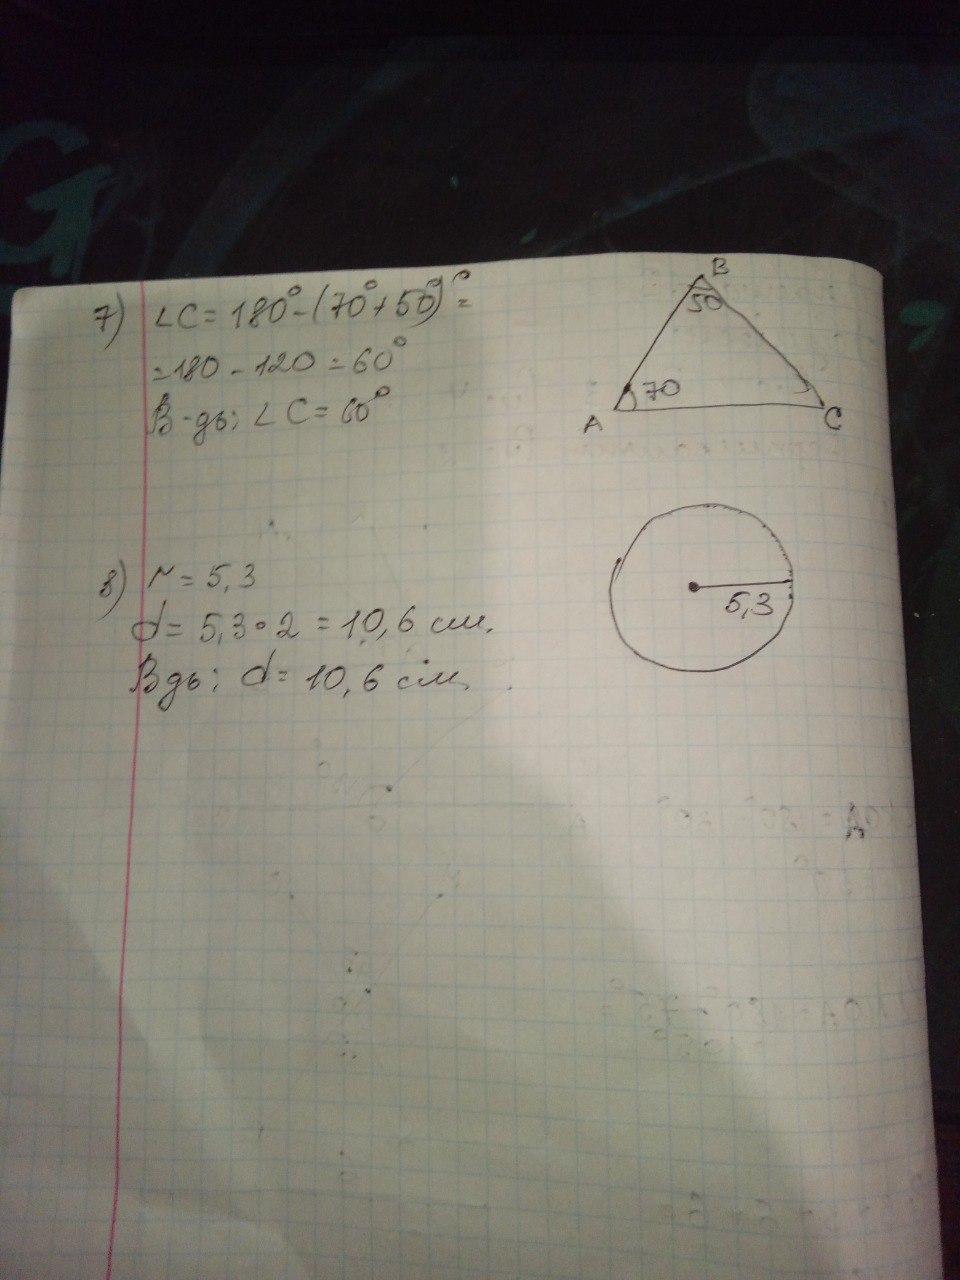 7) ∠C = 180° - (70° + 50°)° =
= 180 - 120 = 60°
В-дь: ∠C = 60°
B
50
70
A
C
8) r = 5,3
d = 5,3 • 2 = 10,6 см.
Вдь: d = 10,6 см
5,3